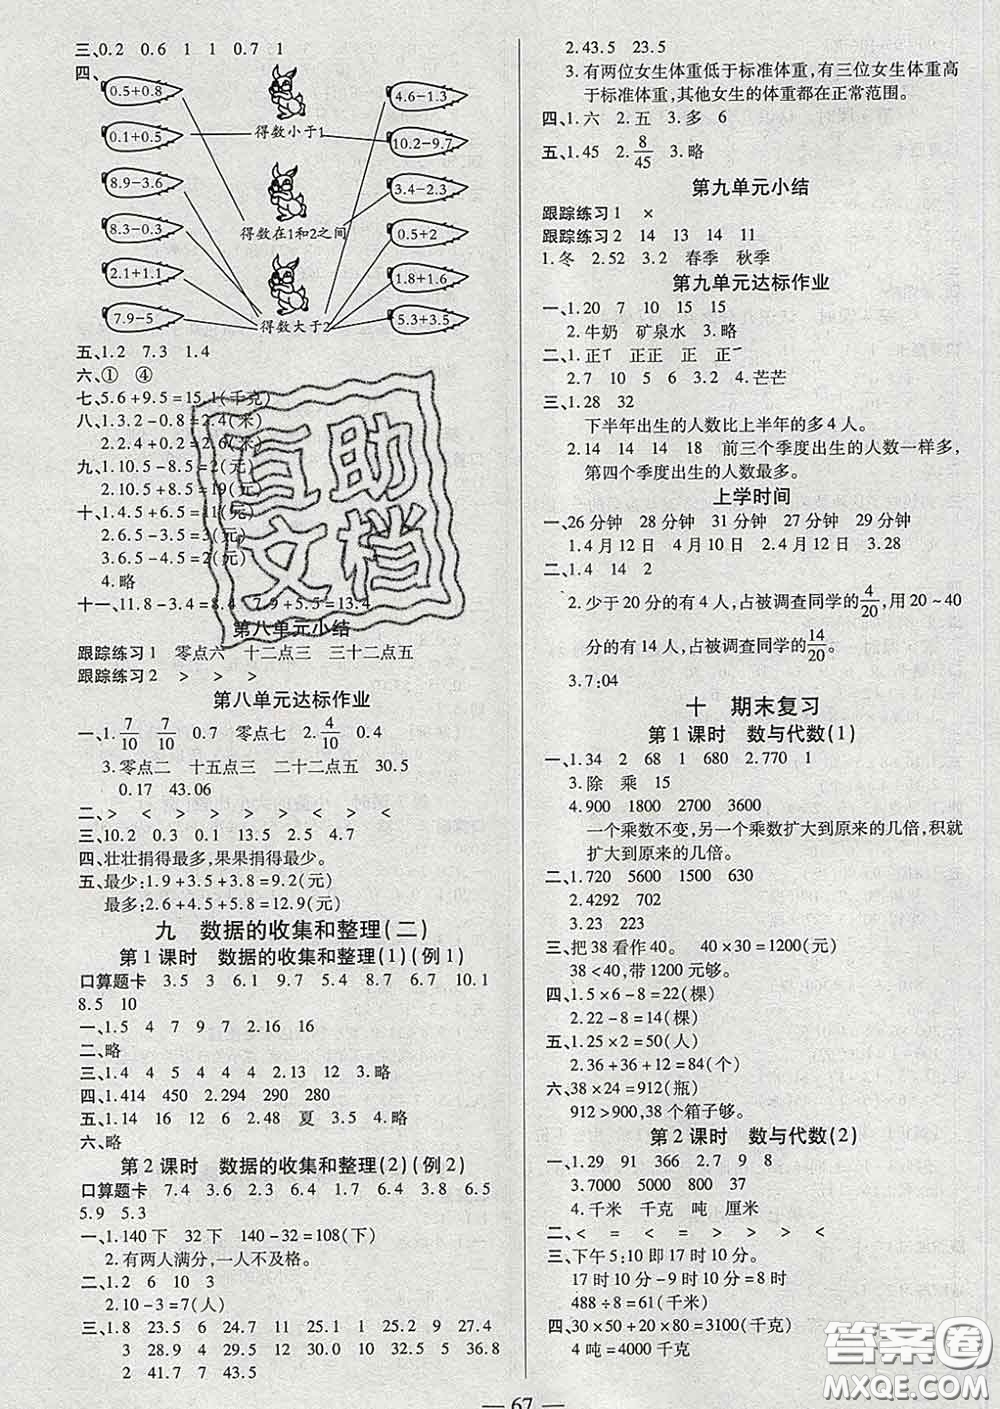 三、0.2 0.6 1 1 0.7 1
四、
0.5+0.8
4.6-1.3
得数小于1
0.1+0.5
10.2-9.7
8.9-3.6
3.4-2.3
8.3-0.3
得数在1和2之间
0.5+2
2.1+1.1
1.8+1.6
7.9-5
得数大于2
5.3+3.5
五、1.2 7.3 1.4
六、① ④
七、5.6+9.5=15.1(千克)
八、1.3.2-0.8=2.4(米)
2.2.4+0.2=2.6(米)
九、1.10.5-8.5=2(元)
2.10.5+8.5=19(元)
十、1.4.5+6.5=11(元)
2.6.5-3.5=3(元)
3.6.5-4.5=2(元)
4.略
十一、11.8-3.4=8.4 7.9+5.5=13.4
第八单元小结
跟踪练习1 零点六 十二点三 三十二点五
跟踪练习2 > > >
第八单元达标作业
一、1.7/10 7/10 0.7 零点七 2.4/10 0.4
3.零点二 十五点三 二十二点五 30.5
0.17 43.06
二、> < < > > >
三、10.2 0.3 0.1 13.5 2.5 4.7
四、壮壮捐得最多,果果捐得最少。
五、最少:1.9+3.5+3.8=9.2(元)
最多:2.6+4.5+5.8=12.9(元)
九 数据的收集和整理(二)
第1课时 数据的收集和整理(1)(例1)
口算题卡 3.5 3 6.1 9.7 5.4 7.8 6.7 10.1
8.5 10
一、1.5 4 7 9 7 2.16 16
二、略
三、1.4 4 5 4 4 4 2.13 12 3.略
四、1.414 450 2.294 290 280
五、1.14 16 12 6 2.48 夏 3.5 4.略
六、略
第2课时 数据的收集和整理(2)(例2)
口算题卡 7.4 3.6 2.3 6.4 1.7 6.4 3.8 6.5
5.9 5.3
一、1.140下 32下 140-32=108(下)
2.有两人满分,一人不及格。
二、1.2 6 10 3
2.10-3=7(人)
三、1.8 23.5 6 24.7 11 25.1 1 25.9 2 27.4
3 28.9 4 23.6 2 24.8 5 32.9 6 36.8
2 41.7 7 43.5
2.43.5 23.5
3.有两位女生体重低于标准体重,有三位女生体重高
于标准体重,其他女生的体重都在正常范围。
四、1.六 2.五 3.多 6
五、1.45 2.8/45 3.略
第九单元小结
跟踪练习1 ×
跟踪练习2 14 13 14 11
1.冬 2.52 3.2 春季 秋季
第九单元达标作业
一、1.20 7 10 15 15
2.牛奶 矿泉水 3.略
二、1.正𠄌 正正 正 正
2.7 10 5 6 3.2 4.芒芒
三、1.28 32
下半年出生的人数比上半年的多4人。
2.14 14 14 18 前三个季度出生的人数一样多,
第四个季度出生的人数最多。
上学时间
一、26分钟 28分钟 31分钟 27分钟 29分钟
1.4月12日 4月10日 2.4月12日 3.28
二、1.4 14 2
2.少于20分的有4人,占被调查同学的4/20,用20~40
分的有14人,占被调查同学的14/20。
3.7:04
十 期末复习
第1课时 数与代数(1)
一、1.34 2 68 1 680 2.770 1
3.除 乘 15
4.900 1800 2700 3600
一个乘数不变,另一个乘数扩大到原来的几倍,积就
扩大到原来的几倍。
二、1.720 5600 1500 630
2.4292 707
3.23 223
三、把38看作40。 40×30=1200(元)
38<40,带1200元够。
四、1.5×6-8=22(棵)
2.22-8=14(棵)
五、1.25×2=50(人)
2.36+36+12=84(个)
六、38×24=912(瓶)
912>900,38个箱子够。
第2课时 数与代数(2)
一、1.29 91 366 2.7 9 8
3.7000 4000 800 37
4.千米 千克 吨 厘米
二、< = < > > > <
三、下午5:10即17时10分。
17时10分-9时10分=8时
488÷8=61(千米)
四、30×50+20×80=3100(千克)
4吨=4000千克
67
互助
文档
答案圈
MXQE.COM